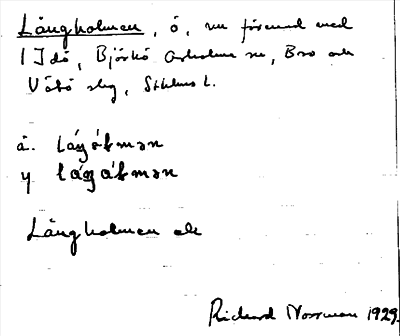 Långholmen, ö, nu förenad med
Idö, Björkö Arholma sn, Bro och
Vätö skg, Sthlms l.
ä.
y
Långholmen ek
Richard Norrman 1929.